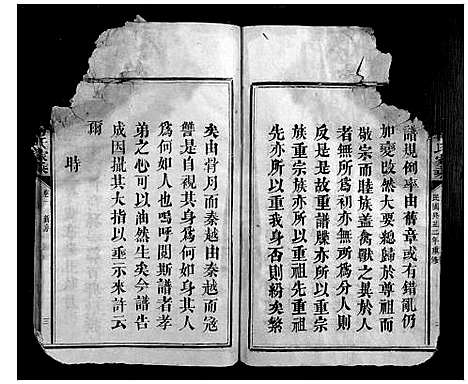 譜規例率由舊章或有錯亂仍
如變改然大要總歸於尊祖而
敬宗而睦族蓋禽獸之異於人
者無所為初亦無所為分人則
反是是故重譜牒亦所以重宗
族重宗族亦所以重祖先重祖
先亦所以重我身否則紛矣繁
矣由骨肉而秦越由秦越而寇
讐是自視其身為何如身其人
為何如人也嗚呼閱斯譜者孝
弟之心可以油然生矣今譜告
成因摭其大指以垂示來許云
爾
時
氏家乘
民國
年重修
氏家乘
卷
三